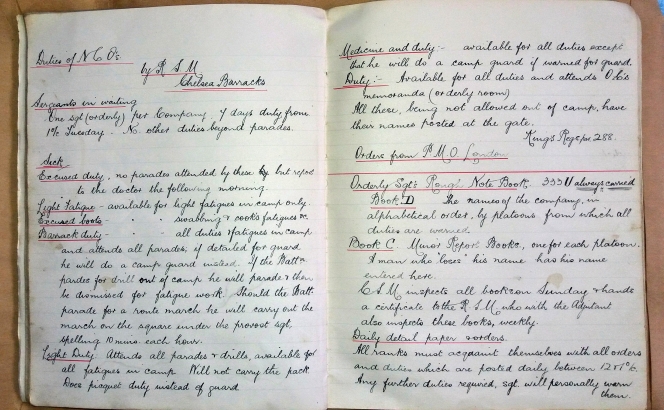 Duties of N.C.O's
by R S M
Chelsea Barracks
Sergeants in waiting
One sgt (orderly) per Company, 7 days duty from
Tuesday - No other duties beyond parades.
Sick
Excused duty, no parades attended by these but report
to the doctor the following morning.
Light Fatigue - available for light fatigues in camp only
Excused boots - swabbing & cooks fatigues &c.
Barrack duty - all duties & fatigues in camp
and attends all parades, if detailed for guard
he will do a camp guard instead. If the Battn
parades for drill out of camp he will parade & then
be dismissed for fatigue work. Should the Batt
parade for a route march he will carry out the
march on the square under the provost sgt,
spelling 10 mins each hour.
Light Duty. Attends all parades & drills, available for
all fatigues in camp. Will not carry the pack
Does picquet duty instead of guard
Medicine and duty:- available for all duties except
that he will do a camp guard if warned for guard.
Duty:- Available for all duties and attends O.C's
memoranda (orderly room)
All these, being not allowed out of camp, have
their names posted at the gate.
Kings Regs par 288.
Orders from P.M.O. London
Orderly Sgt's Rough Note Book. 333 always carried
Book D The names of the company, in
alphabetical order, by platoons from which all
duties are warned
Book C. Minor Report Books, one for each platoon.
A man who 'loses' his name has his name
entered here.
C.S.M inspects all books on Sunday & hands
a certificate to the R S M who with the Adjutant
also inspects these books, weekly.
Daily detail paper & orders.
All ranks must acquaint themselves with all orders
and duties which are posted daily between
Any further duties required, sgt will personally warn
them.